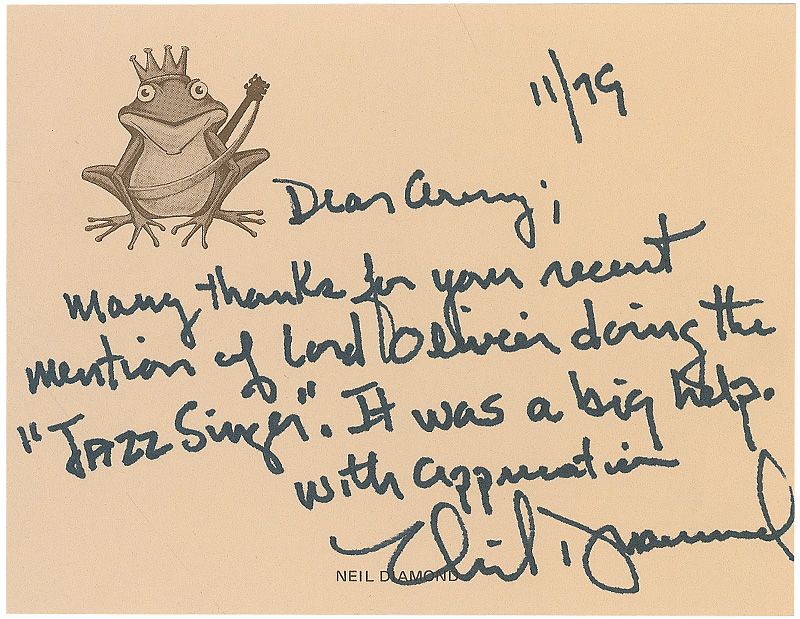 11/79
Dear Army;
Many thanks for your recent
mention of Lord Olivier doing the
"JAZZ Singer". It was a big help.
with appreciation
Neil Diamond
NEIL DIAMOND